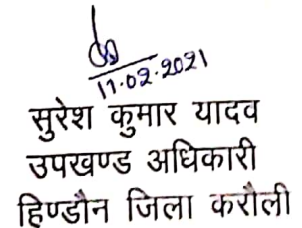 11.02.2021
सुरेश कुमार यादव
उपखण्ड अधिकारी
हिण्डौन जिला करौली